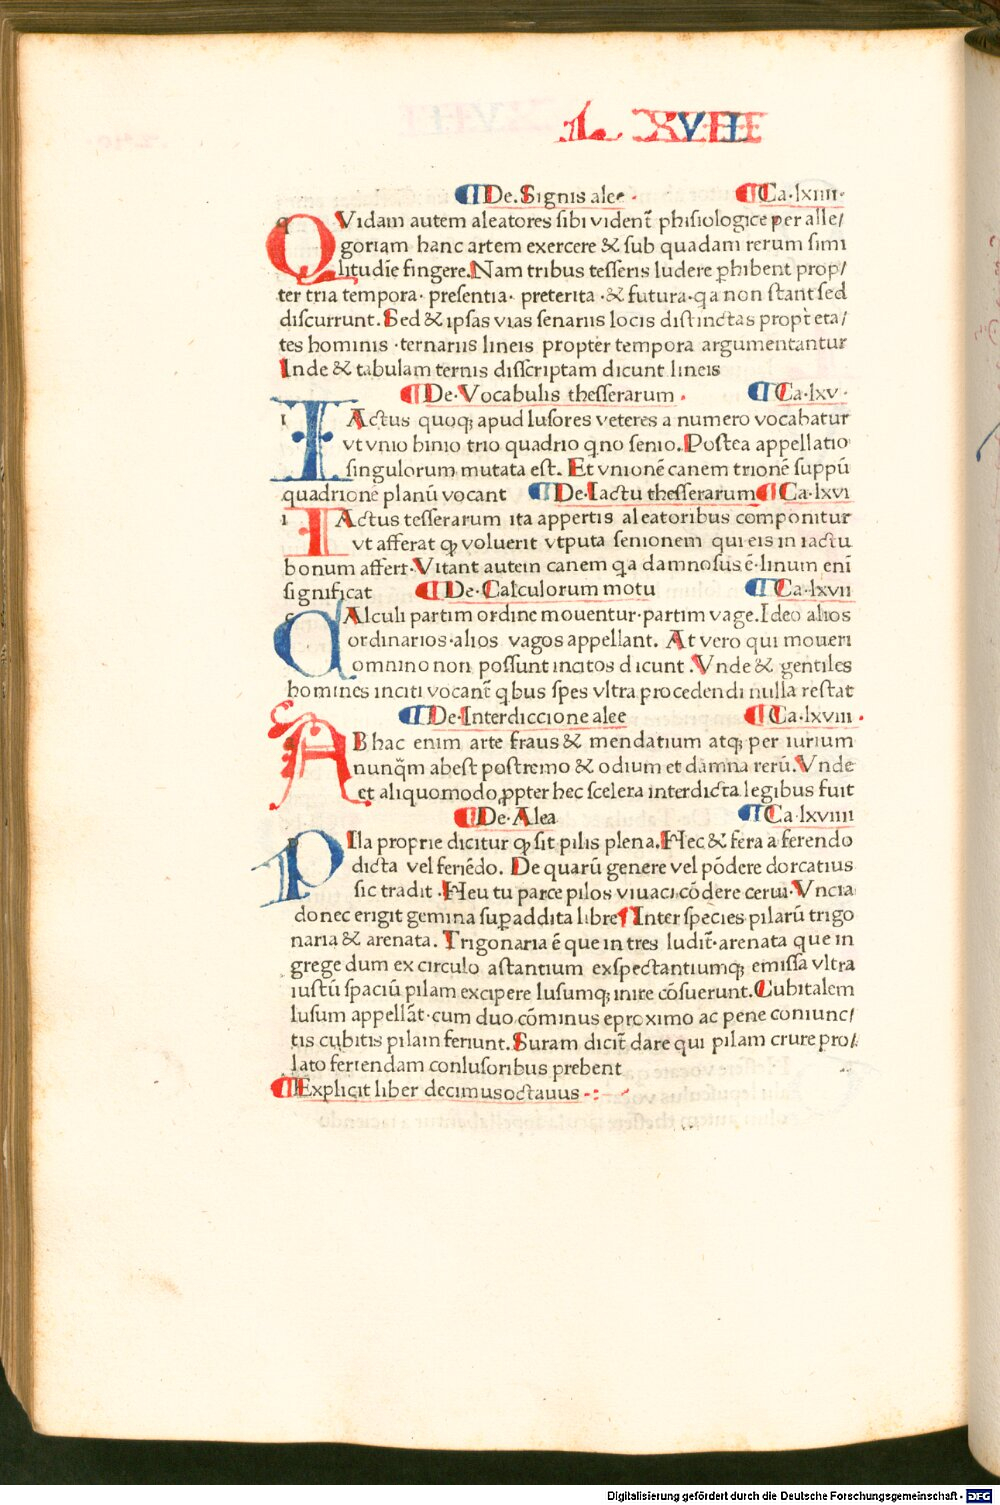 L XVIII
De. Signis alee · Ca·lxiiii·
QVidam autem aleatores sibi vident̄ phisiologice per alle/
goriam hanc artem exercere & sub quadam rerum simi
litudīe fingere. Nam tribus tesseris ludere ꝑhibent prop/
ter tria tempora· presentia· preterita ·& futura·q a non stant sed
discurrunt. Sed & ipsas vias senariis locis distinctas propt̄ eta/
tes hominis ·ternariis lineis propter tempora argumentantur
Inde & tabulam ternis disscriptam dicunt lineis
De·Vocabulis thesserarum · Ca·lxv·
IActus quoqꝫ apud lusores veteres a numero vocabatur
vt vnio binio trio quadrio qno senio. Postea appellatio
singulorum mutata est. Et vnionē canem trionē suppū
quadrionē planū vocant De·Iactu thesserarum Ca·lxvi
IActus tesserarum ita appertis aleatoribus componitur
vt afferat ꝙ voluerit vtputa senionem qui eis in iactu
bonum affert·Vitant autem canem qa damnosus ē·Iinum enī
significat De·Calculorum motu Ca·lxvii
cAlculi partim ordine mouentur·partim vage. Ideo alios
ordinarios·alios vagos appellant. At vero qui moueri
omnino non possunt incitos dicunt. Vnde & gentiles
homines inciti vocant̄ qbus spes vltra procedendi nulla restat
De·Interdiccione alee Ca·lxviii·
AB hac enim arte fraus & mendatium atqꝫ per iurium
nunq̄m abest postremo & odium et damna rerū. Vnde
et aliquomodo ꝓpter hec scelera interdicta legibus fuit
De·Alea Ca·lxviiii
PIla proprie dicitur ꝙ sit pilis plena. Hec & fera a ferendo
dicta vel feriēdo. De quarū genere vel pōdere dorcatius
sic tradit ·Heu tu parce pilos viuaci cōdere cerui·Vncia
donec erigit gemina suꝑaddita libre Inter species pilarū trigo
naria & arenata. Trigonaria ē que in tres ludit̄·arenata que in
grege dum ex circulo astantium exspectantiumqꝫ emissa vltra
iustū spaciū pilam excipere lusumqꝫ inire cōsuerunt. Cubitalem
lusum appellāt·cum duo cōminus e proximo ac pene coniunc/
tis cubitis pilam feriunt. Suram dicit̄ dare qui pilam crure pro/
lato feriendam conlusoribus prebent
Explicit liber decimusoctauus -:-
Digitalisierung gefördert durch die Deutsche Forschungsgemeinschaft - DFG